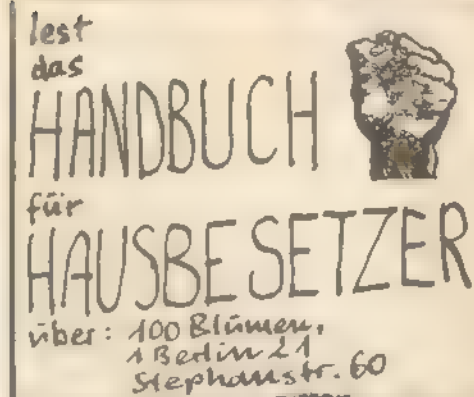 lest
das
HANDBUCH
für
HAUSBESETZER
über: 100 Blümen,
1 Berlin 21
Stephanstr. 60